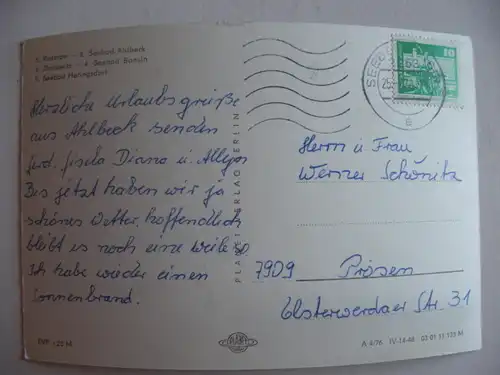 1. Koserow - 2. Seebad Ahlbeck
3. Zinnowitz - 4. Seebad Bansin
5. Seebad Heringsdorf
Herzliche Urlaubsgrüße
aus Ahlbeck senden
Ferd. Gisela Diana u.
Bis jetzt haben wir ja
schönes Wetter, hoffendlich
bleibt es noch eine weile so.
Ich habe wieder einen
Sonnenbrand.
EVP
M
PLANET-VERLAG BERLIN
SEEB
10
Herrn u Frau
Werner Schönitz
7909 Prösen
Elsterwerdaer Str. 31
PLANET
A 4/76 IV-14-48 03 01 11 133 M